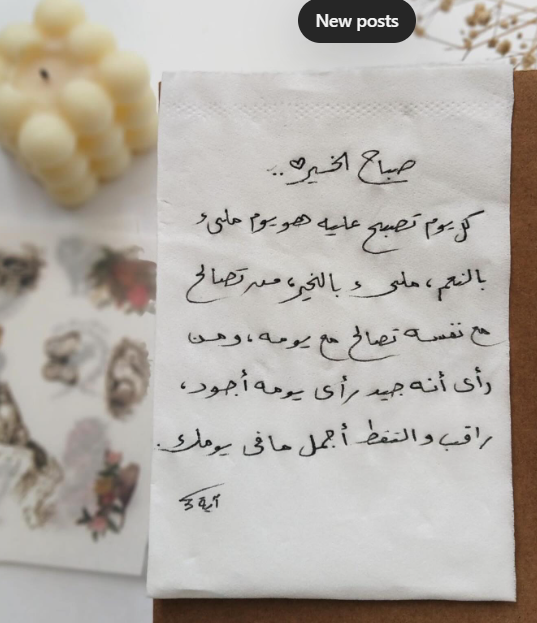 New posts
صباح الخير ♥ ..
كل يوم تصبح عليه هو يوم مليء
بالنعم، مليء بالخير، من تصالح
مع نفسه تصالح مع يومه، ومن
رأى أنه جيد رأى يومه أجود،
راقب والتقط أجمل ما في يومك.
آية